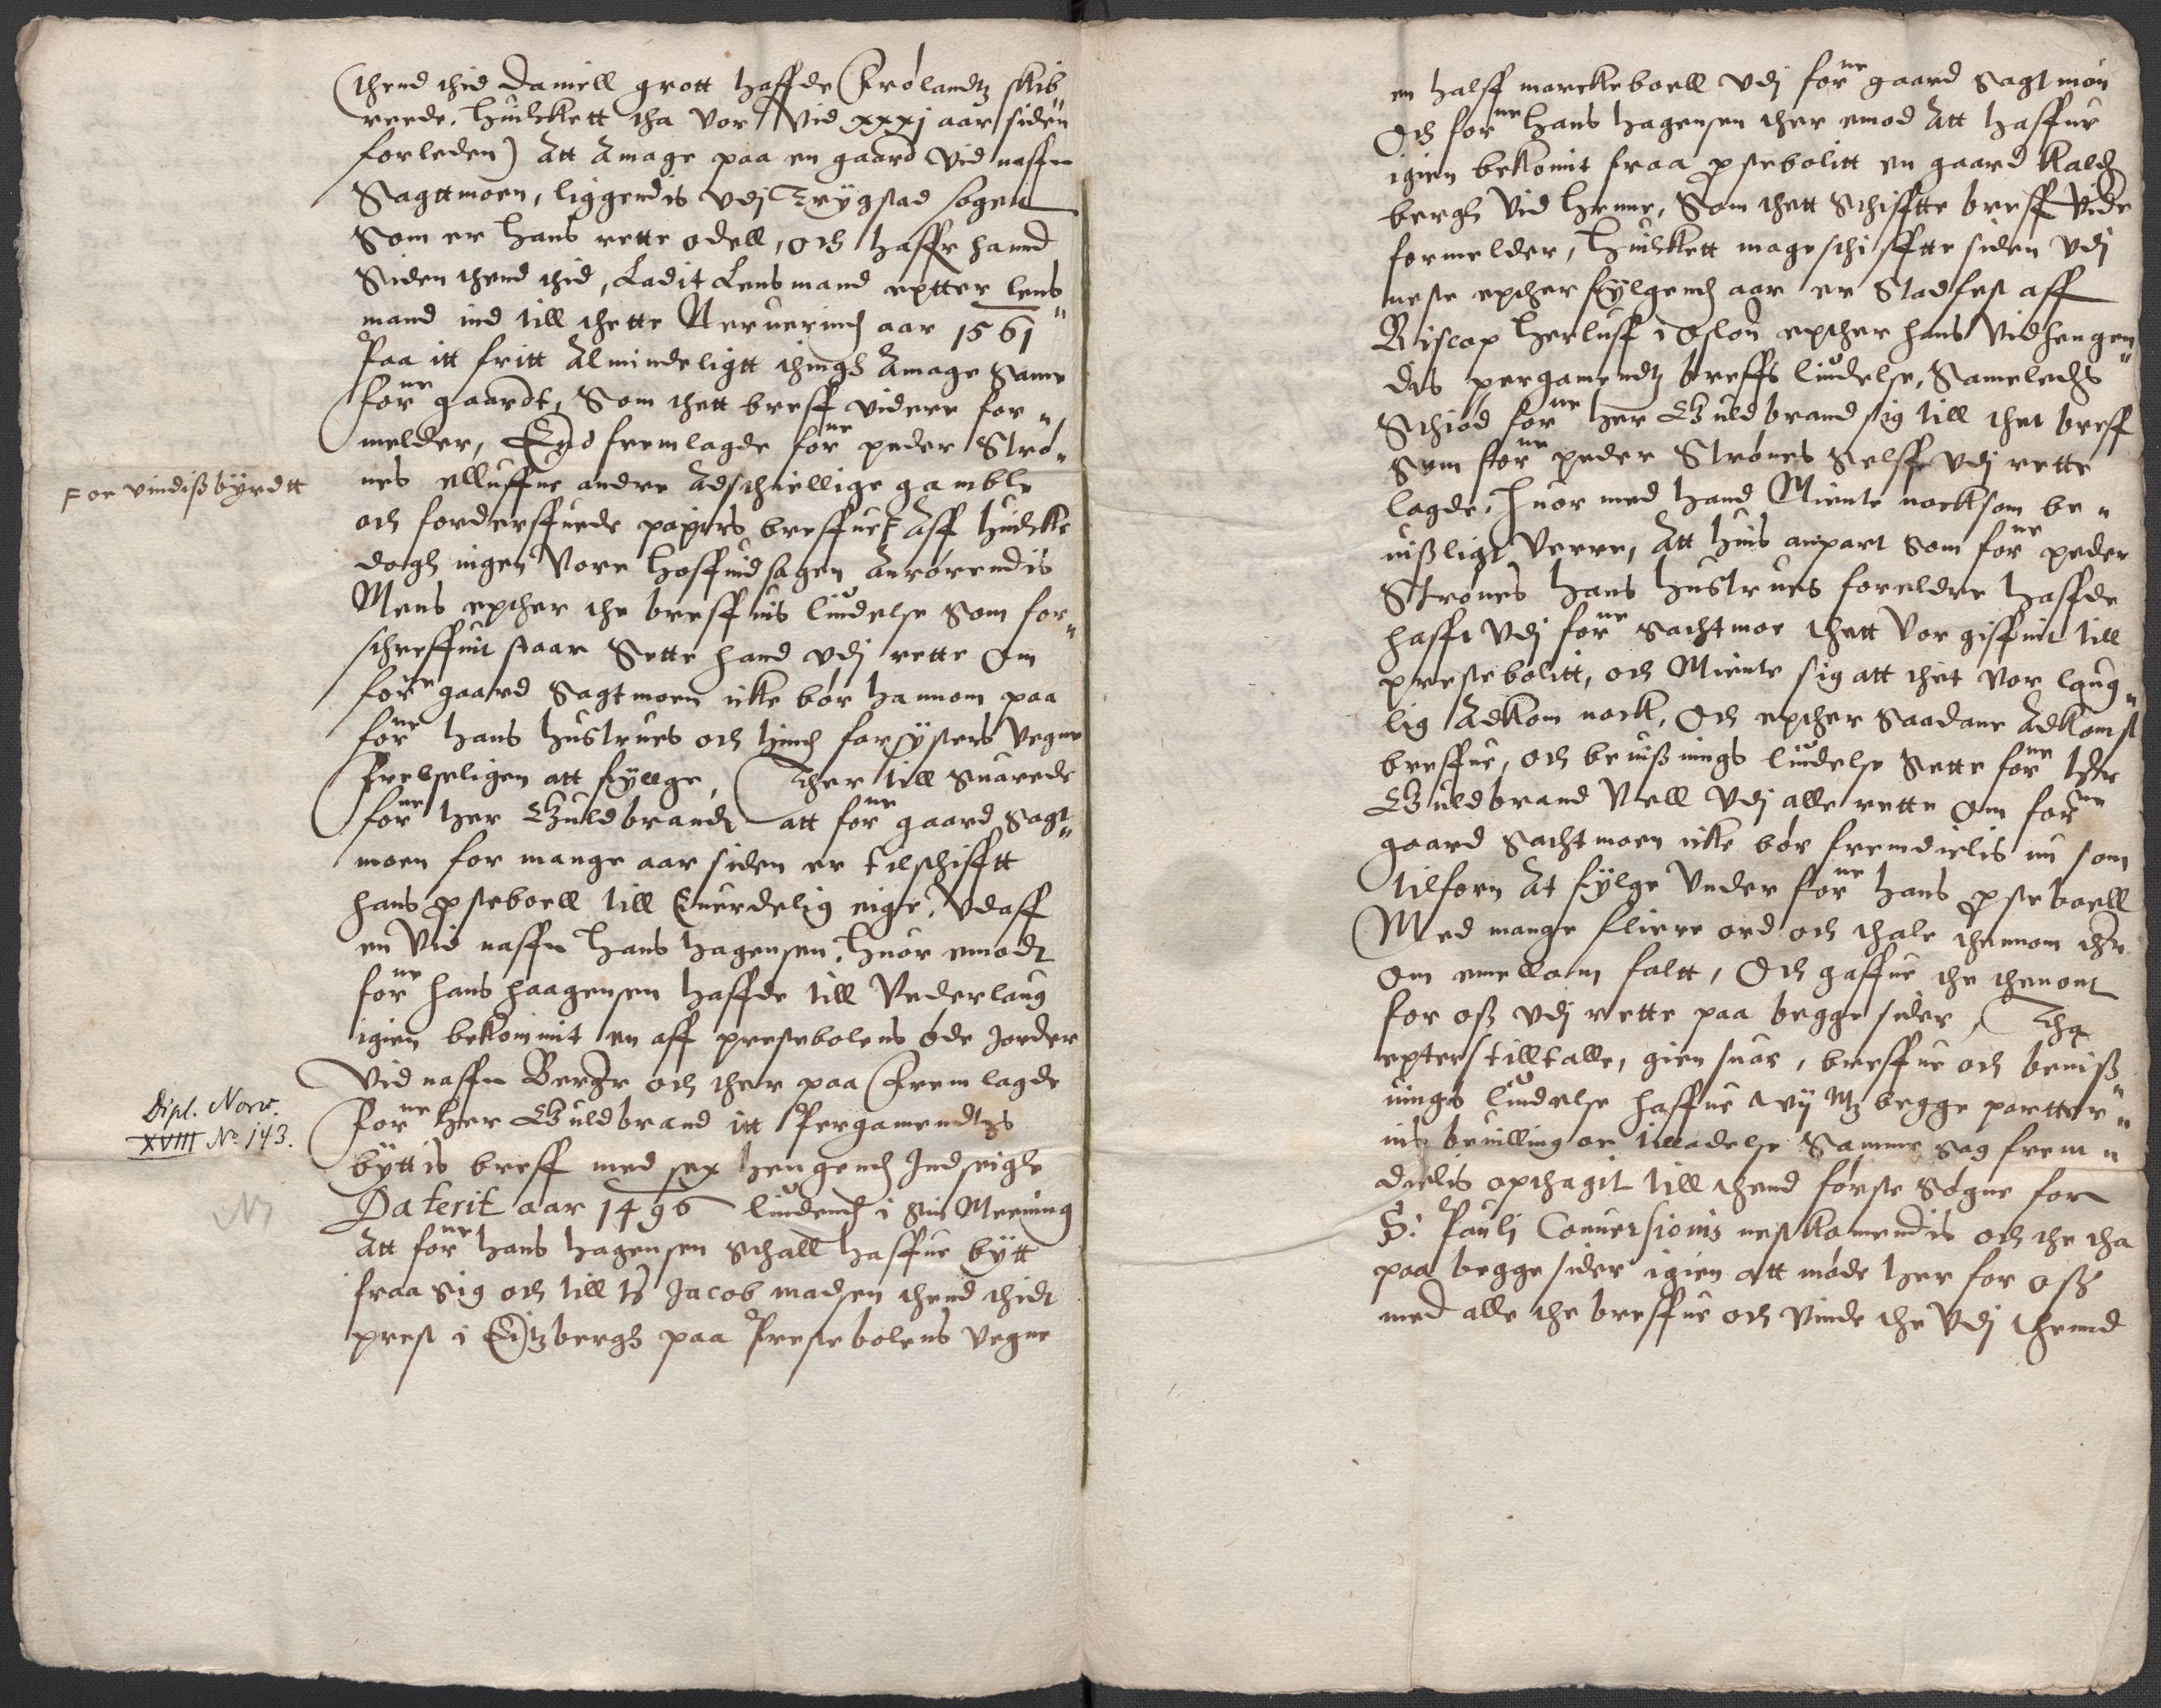 (thend thid Daniell grott haffde Frølandtz skib
reede, huilckett tha vor vid xxxj aar siden
forleden) Att Amage paa en gaard vid naffn
Sagttmoen, liggendis vdj Trygstad sogen
Som er hans rette odell, och haffr hannd
Siden thend thid, Ladit Lensmand eptter lens"
mand ind till thette Neruerind aar 1561
Paa itt fritt Almindeligtt thingh Amage Same
forne gaardt, Som thett breff videre for"
melder, End fremlagde forne peder Strø"
nes elluffue andre Adschiellige gamble
och forderffuede papirs breffue F Aff huilcke
dogh ingen vore hoffuidsagen Anrørendis
Mens epther the breffuis liudelse Som for"
schreffuit staar Sette hand vdj rette Om
forne gaard Sagtmoen icke bør hannom paa
forne hans hustrues och hind farsysters vegne
Frelseligen att fyllge, Ther till Suarede
forne her Guldbrandt att forne gaard Sagt"
moen for mange aar siden er tilschifftt
hans psteboell till Euerdelig eige, vdaff
en vid naffn hans hagensen, huor emodt
forne hans haagensen haffde till vederlaug
igien bekommit en aff prestebolens øde Jorder
vid naffn Bergr och ther paa Fremlagde
forne her Guldbrand itt Pergamendtzs
byttis breff med sex hengend Indseigle
Daterit aar 1496 liudend i sin Meening
Att forne hans hagensen Schall haffue bytt
fraa Sig och till hr Jacob madsen thend thidt
prest i Eitzbergh paa Prestebolens vegne
For vindissbyrdtt
Dipl. Norv.
XVIII No 143.
en halff marckeboell vdj forne gaard Sagtmøn
Och forne hans hagensen ther emod Att haffue
igien bekomit fraa pstebolitt en gaard kald
bergh vid henne, Som thett Schifftte breff vide
formelder, huilckett mageschifftte siden vdj
neste epther fylgend aar er Stadfest aff
Biscop herluff i Oslou epther hans vidhengen"
dis pergamendtz breffs liudelse, Sameledhs
Schiød forne her Guldbrand sig till thet breff
Som forne peder Strønes Selff vdj rette
lagde, huor med hand Miente nocksom be"
uissligt verre, Att huis anpart Som forne peder
Strønes hans hustrues foreldre haffde
hafft vdj forne Sachtmoe thett vor giffuit till
prestebolitt, och Miente sig att thet vor laug"
lig Adkom nock, Och epther Saadane Adkomst
breffue, och beuissnings liudelse Sette forne her
Guldbrand Vell vdj alle rette Om forne
gaard Sachtmoen icke bør fremdielis nu som
tilforn At fylge vnder forne hans psteboell
Med mange fliere ord och thale thennom ther
om emellom faltt, Och gaffue the thenom
for oss vdj rette paa begge sider, Tha
epter tilltalle, giensuar, breffue och beuiss"
nings liudelse haffue wij Mz begge partter"
nis beuilling oc tilladelse Samme Sag frem"
dielis opthagit till thend første Søgne for
S: Pauli Conuersionis nestkomendis och the tha
paa begge sider igien att møde her for oss
med alle the breffue och vinde the vdj themd